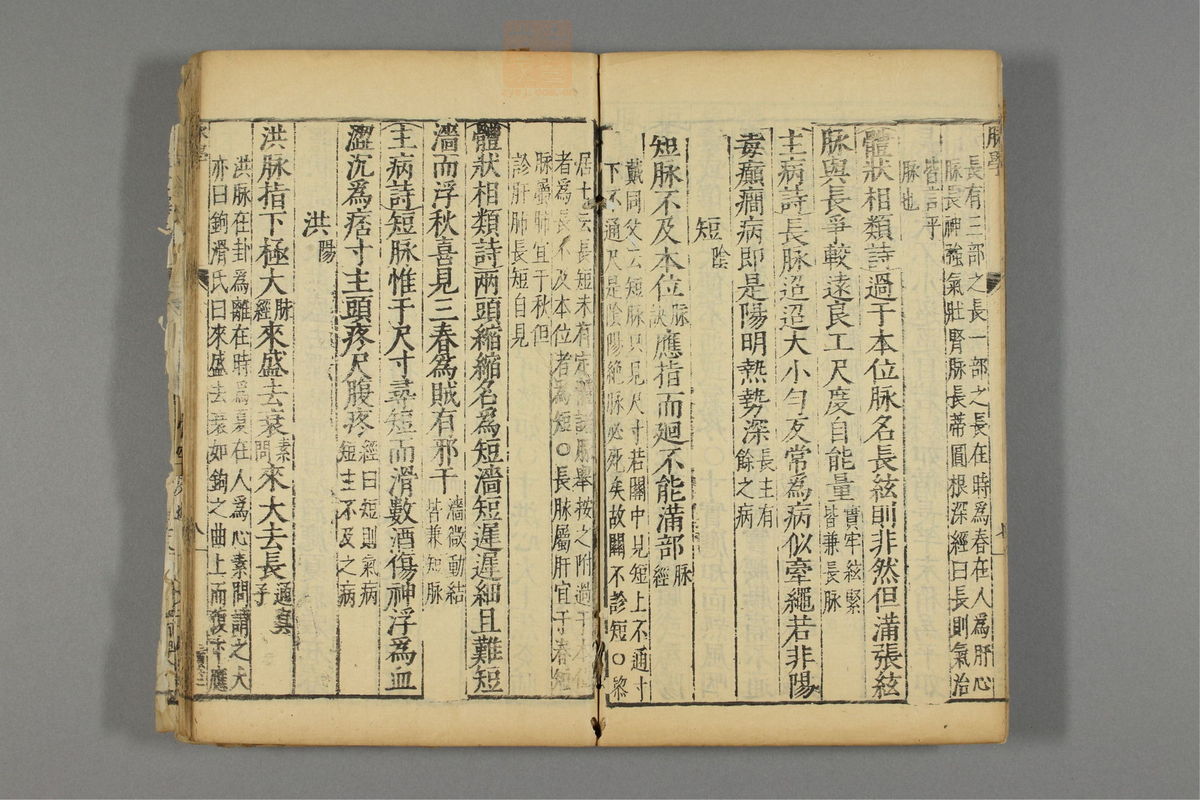 脉學
長有三部之長一部之長在時為春在人為肝心
脉長神強氣壯腎脉長蒂固根深經曰長則氣治
皆言平
脉也
體狀相類詩過于本位脉名長絃則非然但滿張絃
脉與長爭較遠良工尺度自能量實牢絃緊
皆兼長脉
主病詩長脉迢迢大小勻反常為病似牽繩若非陽
毒癲癎病即是陽明熱勢深長主有
餘之病
短陰
短脉不及本位脉
訣應指而廻不能滿部脉
經
戴同父云短脉只見尺寸若關中見短上不通寸
下不通尺是陰陽絕脉必死矣故關不診短〇黎
居士云長短未有定體諸脉舉按之附過于本位
者為長不及本位者為短〇長脉屬肝宜于春短
脉屬肺宜于秋但
診肝肺長短自見
體狀相類詩兩頭縮縮名為短濇短遲遲細且難短
濇而浮秋喜見三春為賊有邪干濇微動結
皆兼短脉
主病詩短脉惟于尺寸尋短而滑數酒傷神浮為血
澀沉為痞寸主頭疼尺腹疼經曰短則氣病
短主不及之病
洪陽
洪脉指下極大脉
經來盛去衰素
問來大去長通真
子
洪脉在卦為離在時為夏在人為心素問謂之大
亦曰鉤滑氏曰來盛去衰如鉤之曲上而復下應